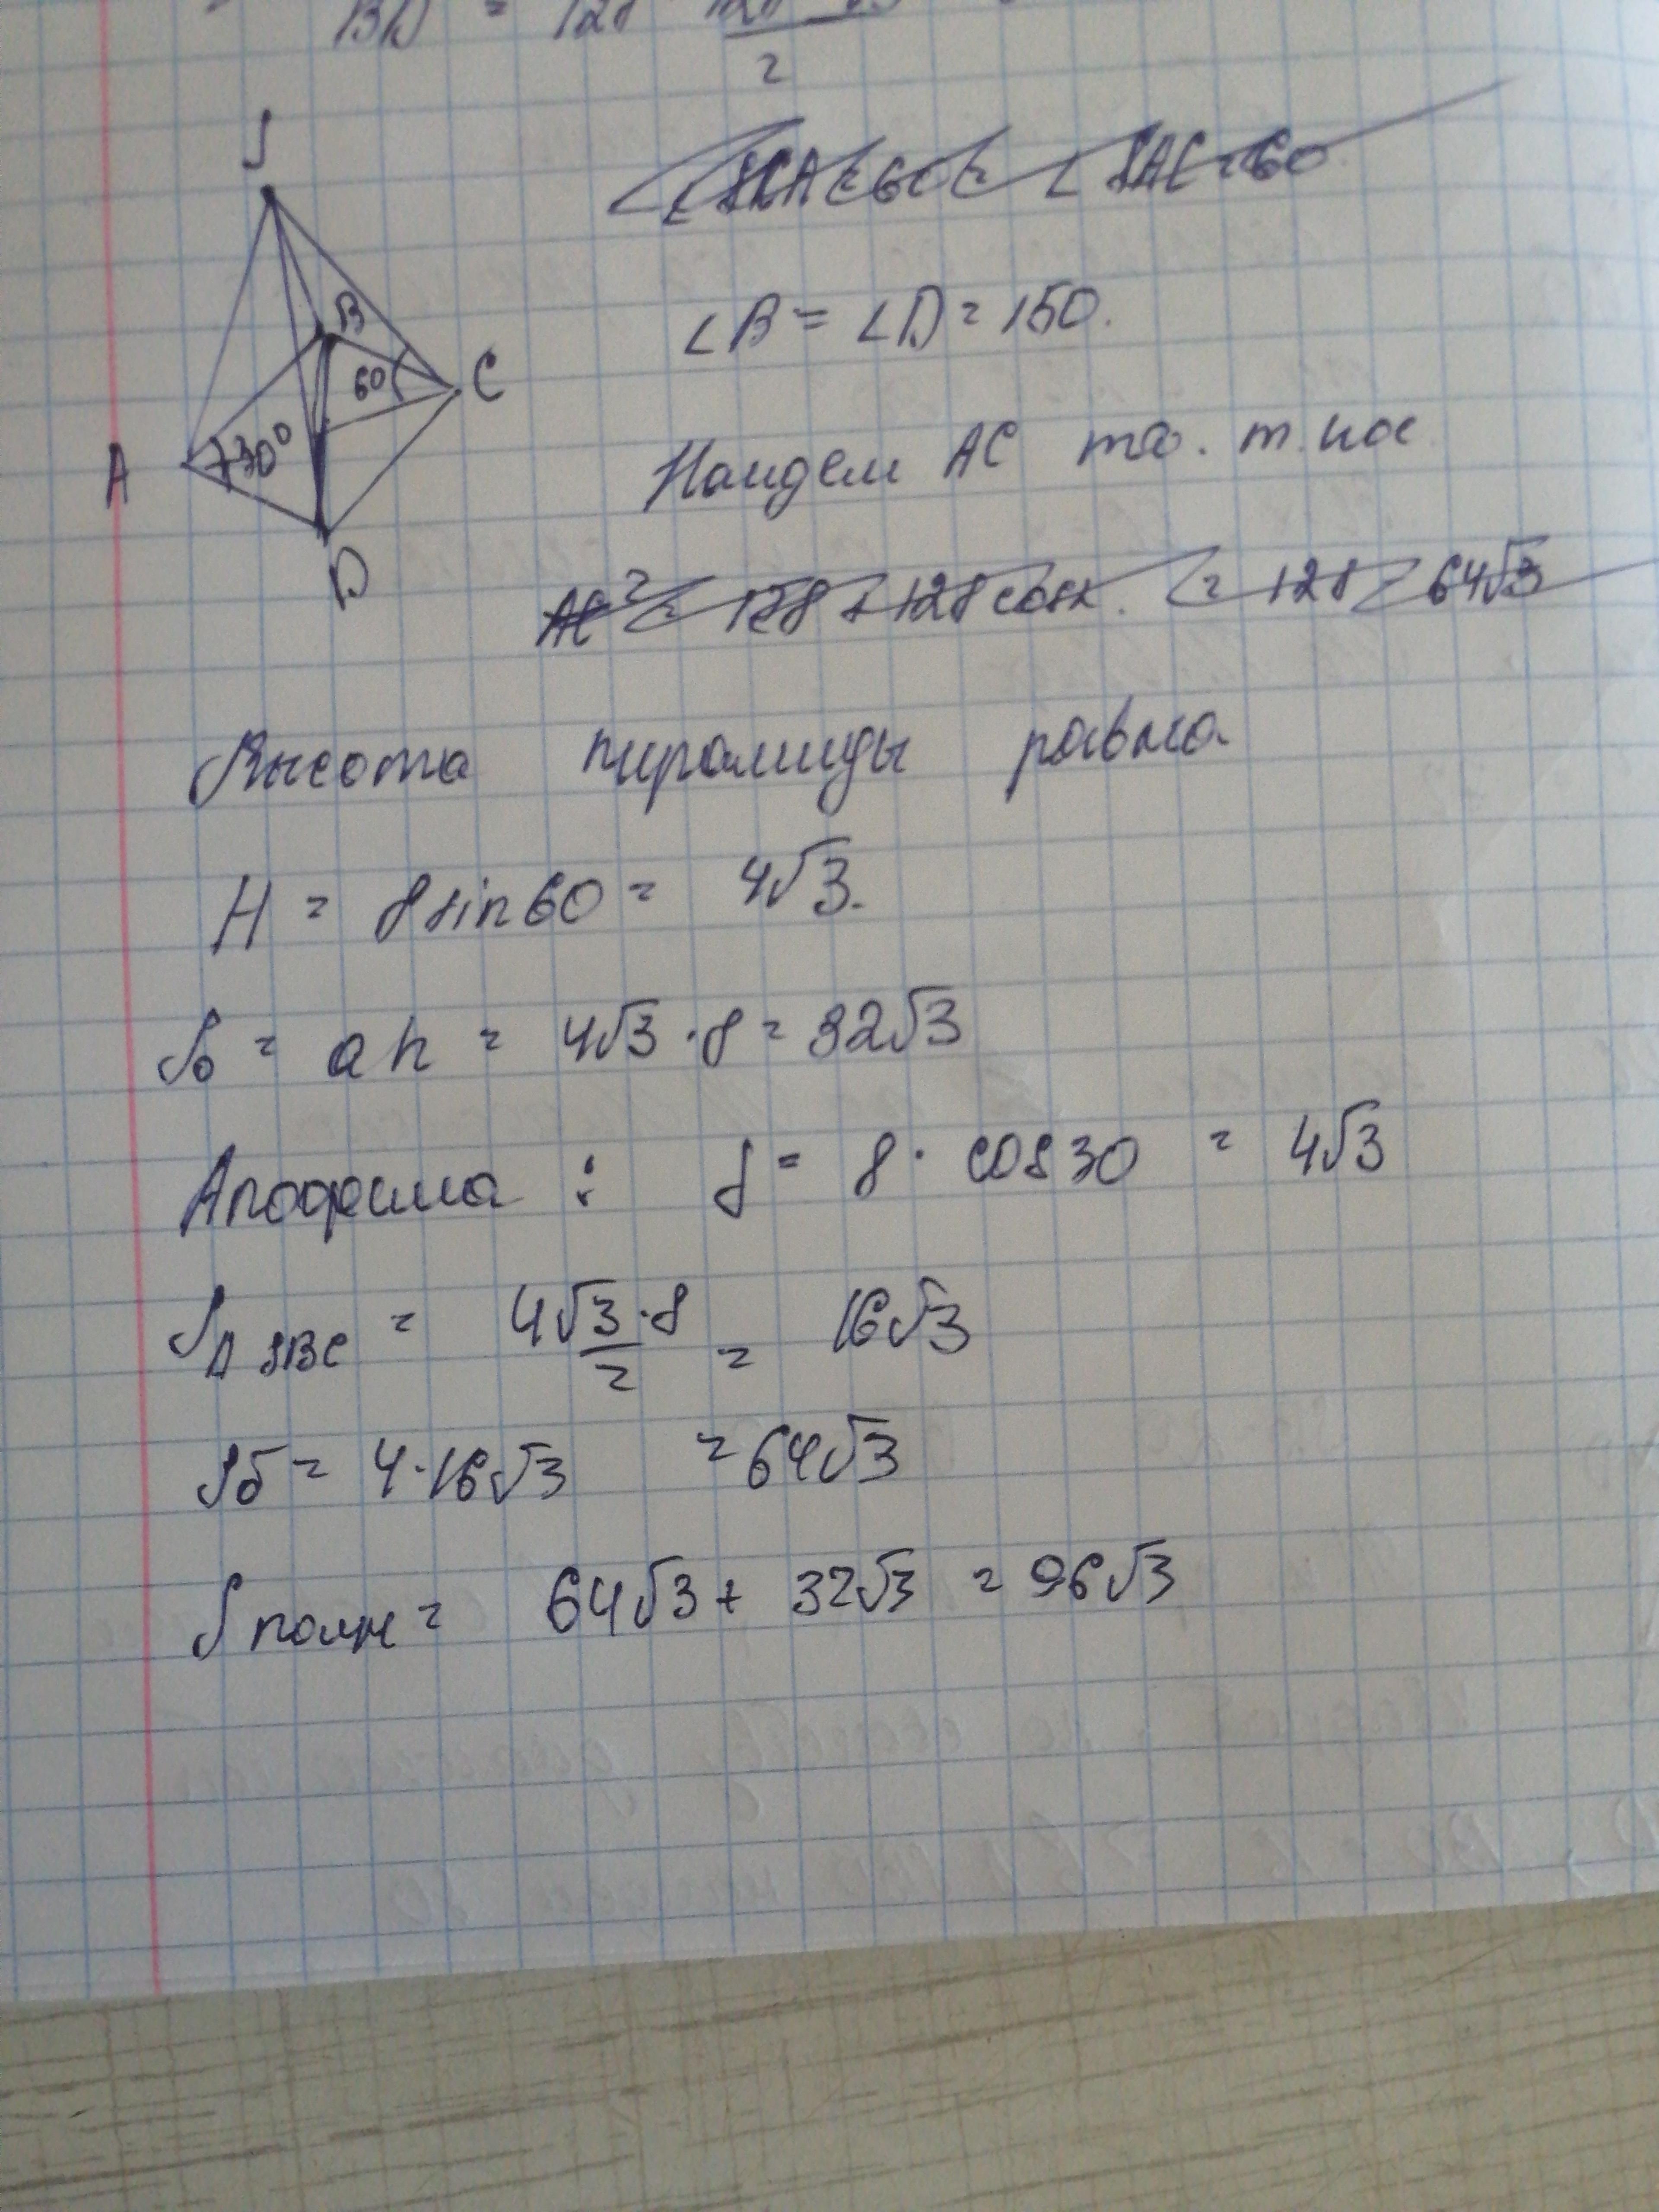 BD = 128
2
S
∠SCA = 60 ∠SAC = 60
B
∠B = ∠D = 150.
60
C
30°
A
Найдем AC по. т. кос
D
AC² = 128 + 128 cosα. = 128 64√3
Высота пирамиды равна
H = 8 sin 60 = 4√3.
So = ah = 4√3 · 8 = 32√3
Апофема : f = 8 · cos 30 = 4√3
S△ SBC = 4√3·8/2 = 16√3
Sб = 4·16√3 = 64√3
S полн = 64√3 + 32√3 = 96√3